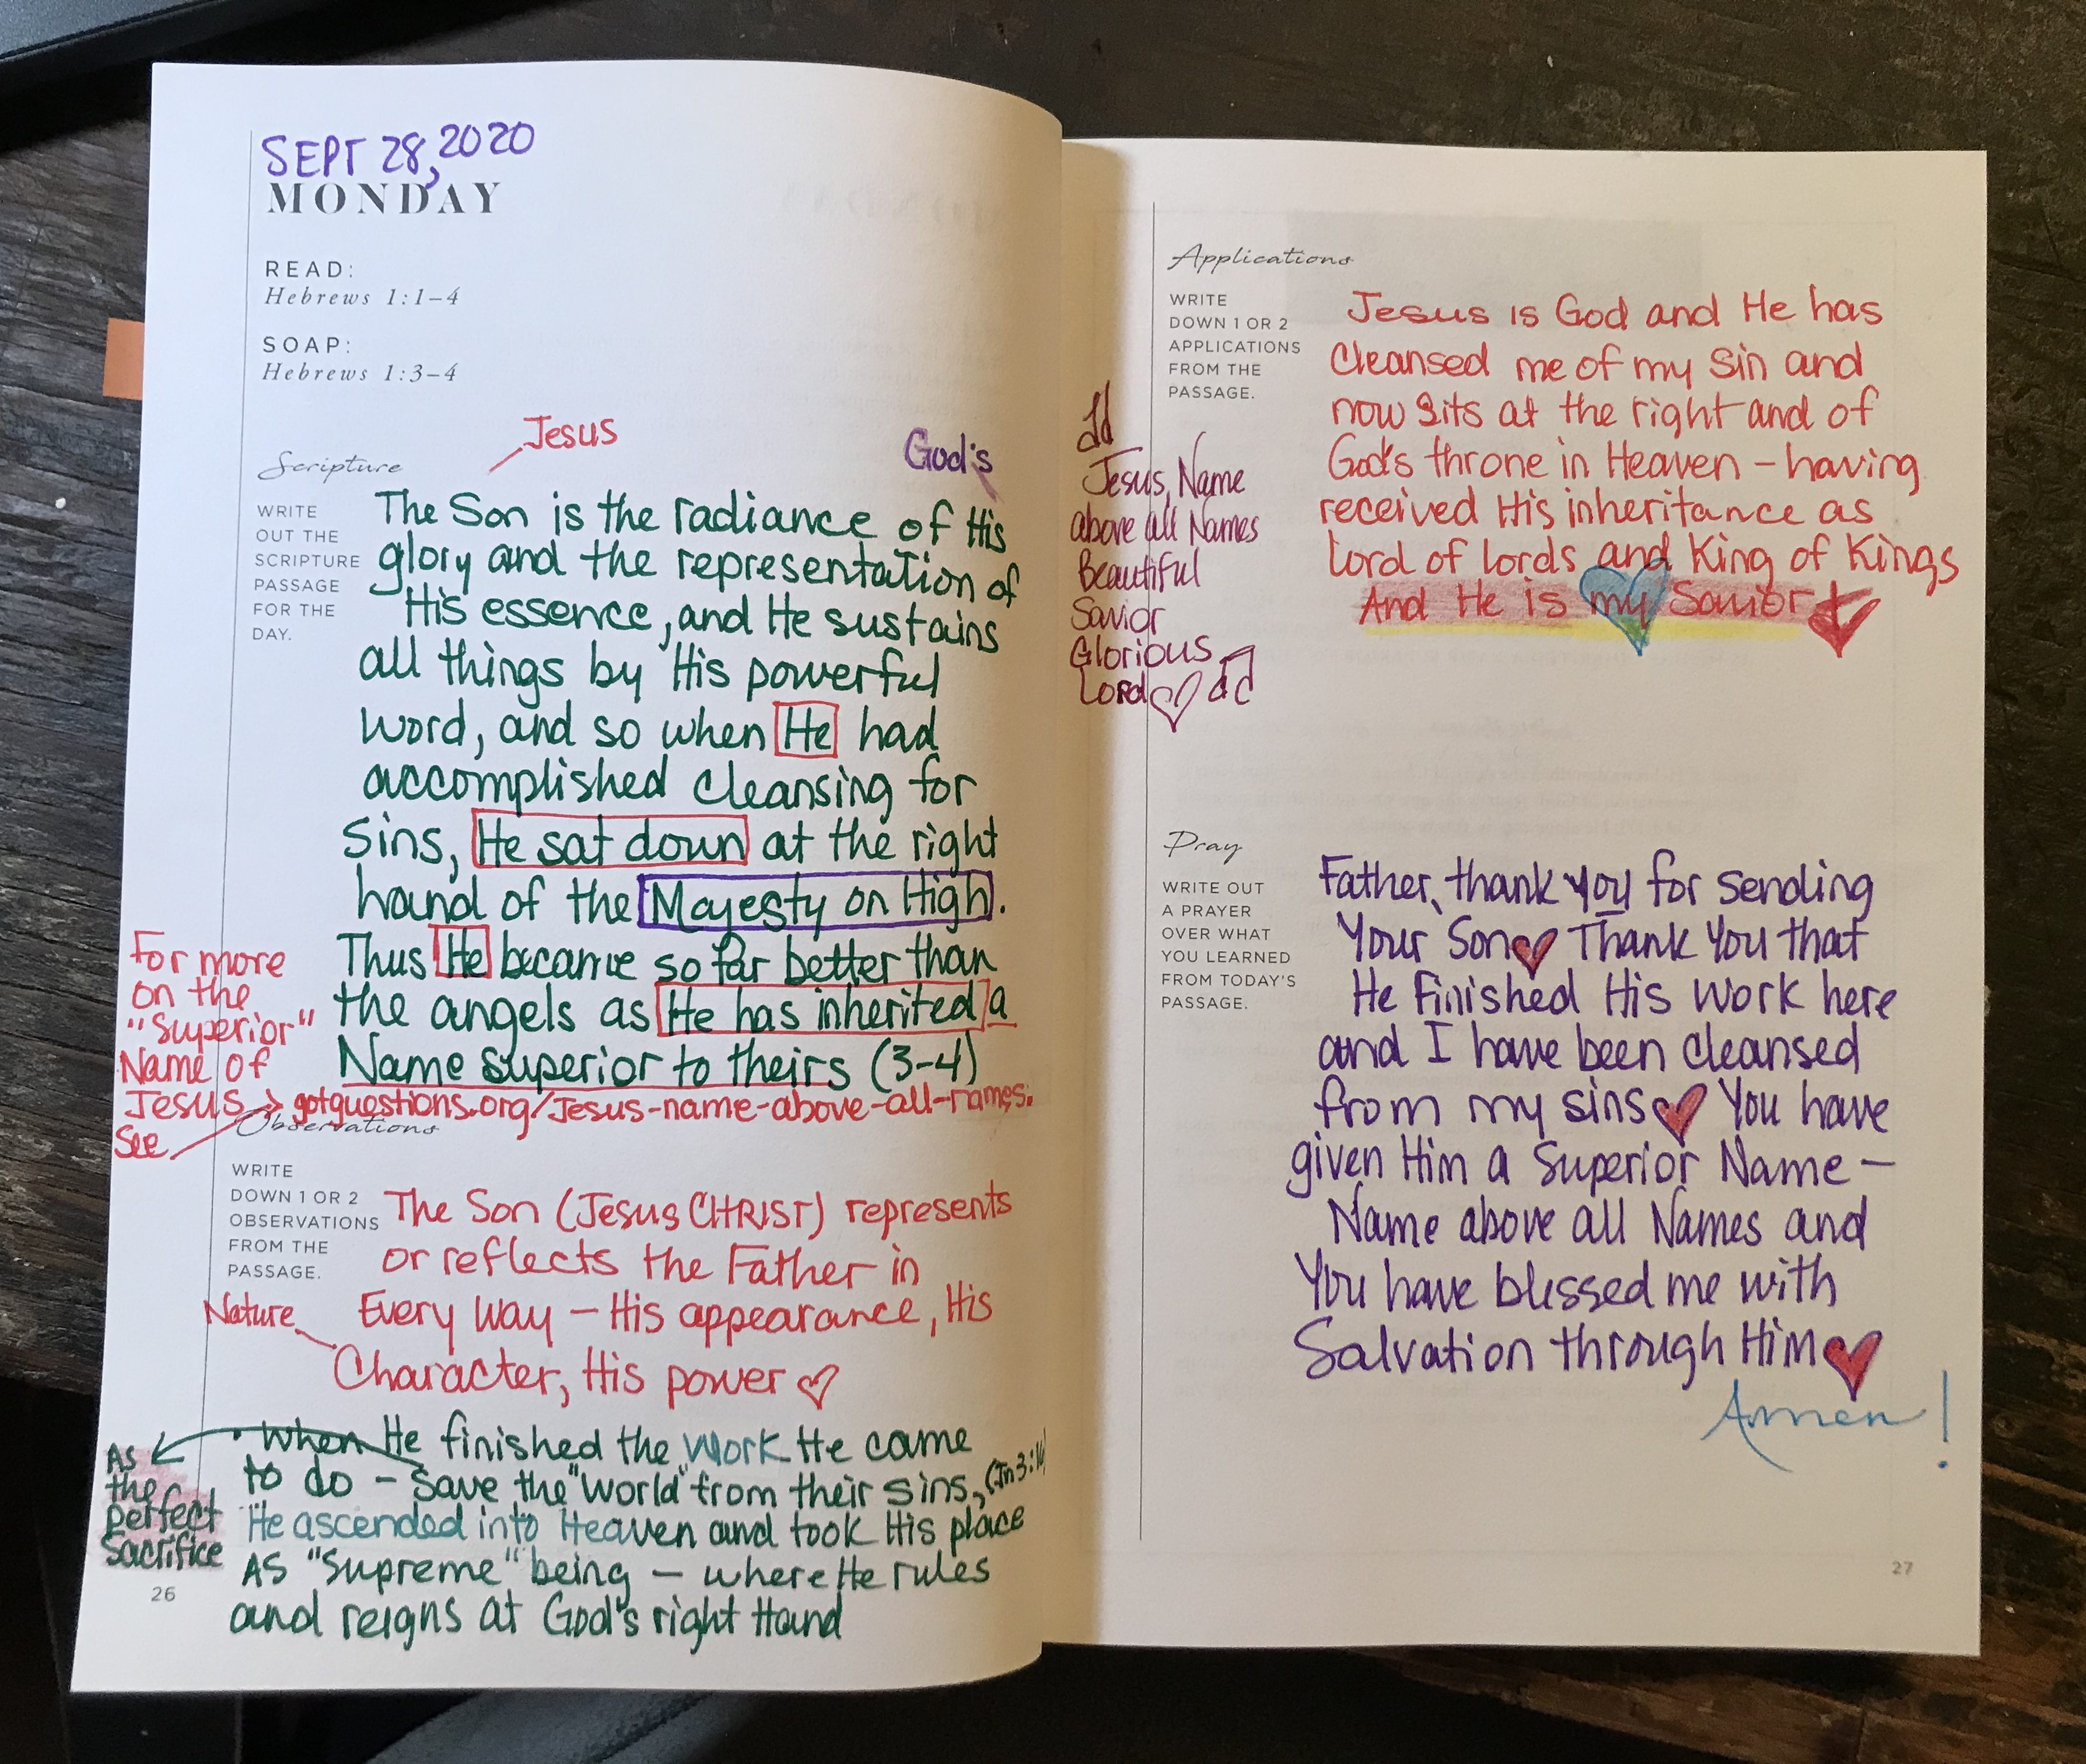 SEPT 28, 2020
MONDAY
READ:
Hebrews 1:1–4
SOAP:
Hebrews 1:3–4
Jesus
God's
Scripture
WRITE
OUT THE
SCRIPTURE
PASSAGE
FOR THE
DAY.
The Son is the radiance of His
glory and the representation of
His essence, and He sustains
all things by His powerful
word, and so when He had
accomplished cleansing for
Sins, He sat down at the right
hand of the Majesty on High.
Thus He became so far better than
the angels as He has inherited a
Name superior to theirs (3-4)
For more
on the
"Superior"
Name of
Jesus
See
gotquestions.org/Jesus-name-above-all-names.
Observations
WRITE
DOWN 1 OR 2
OBSERVATIONS
FROM THE
PASSAGE.
The Son (Jesus CHRIST) represents
or reflects the Father in
Every way – His appearance, His
Nature
Character, His power
• When He finished the work He came
to do – save the "world" from their sins, (Jn 3:16)
He ascended into Heaven and took His place
AS "Supreme" being – where He rules
and reigns at God's right Hand
As
the
perfect
sacrifice
26
Applications
WRITE
DOWN 1 OR 2
APPLICATIONS
FROM THE
PASSAGE.
Jesus is God and He has
Cleansed me of my Sin and
now Sits at the right and of
God's throne in Heaven – having
received His inheritance as
Lord of lords and King of Kings
And He is my Savior
Jesus, Name
above all Names
Beautiful
Savior
Glorious
Lord
Pray
WRITE OUT
A PRAYER
OVER WHAT
YOU LEARNED
FROM TODAY'S
PASSAGE.
Father, thank you for sending
Your Son Thank You that
He finished His work here
and I have been cleansed
from my sins You have
given Him a Superior Name –
Name above all Names and
You have blessed me with
Salvation through Him
Amen!
27